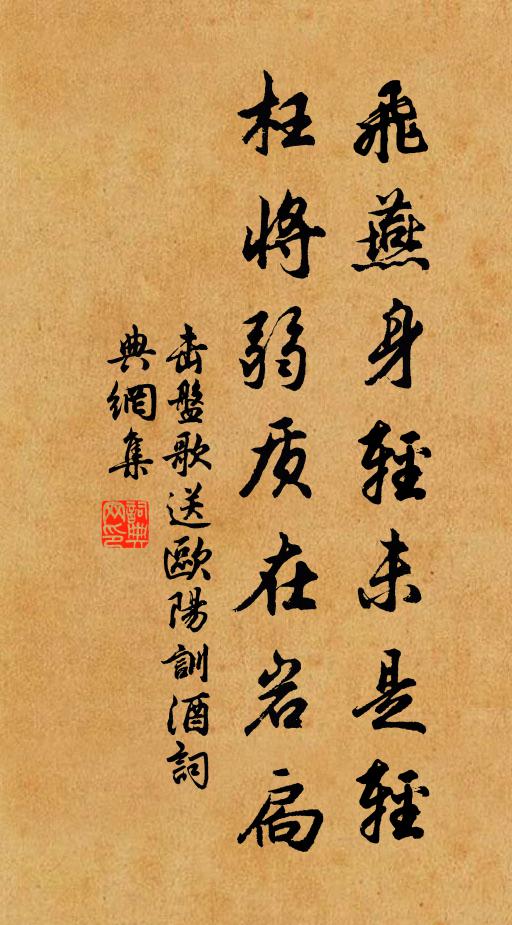 飛燕身輕未是輕
枉將弱质在岩扃
击盤歌送歐陽訓酒詞
典網集
詞典網印